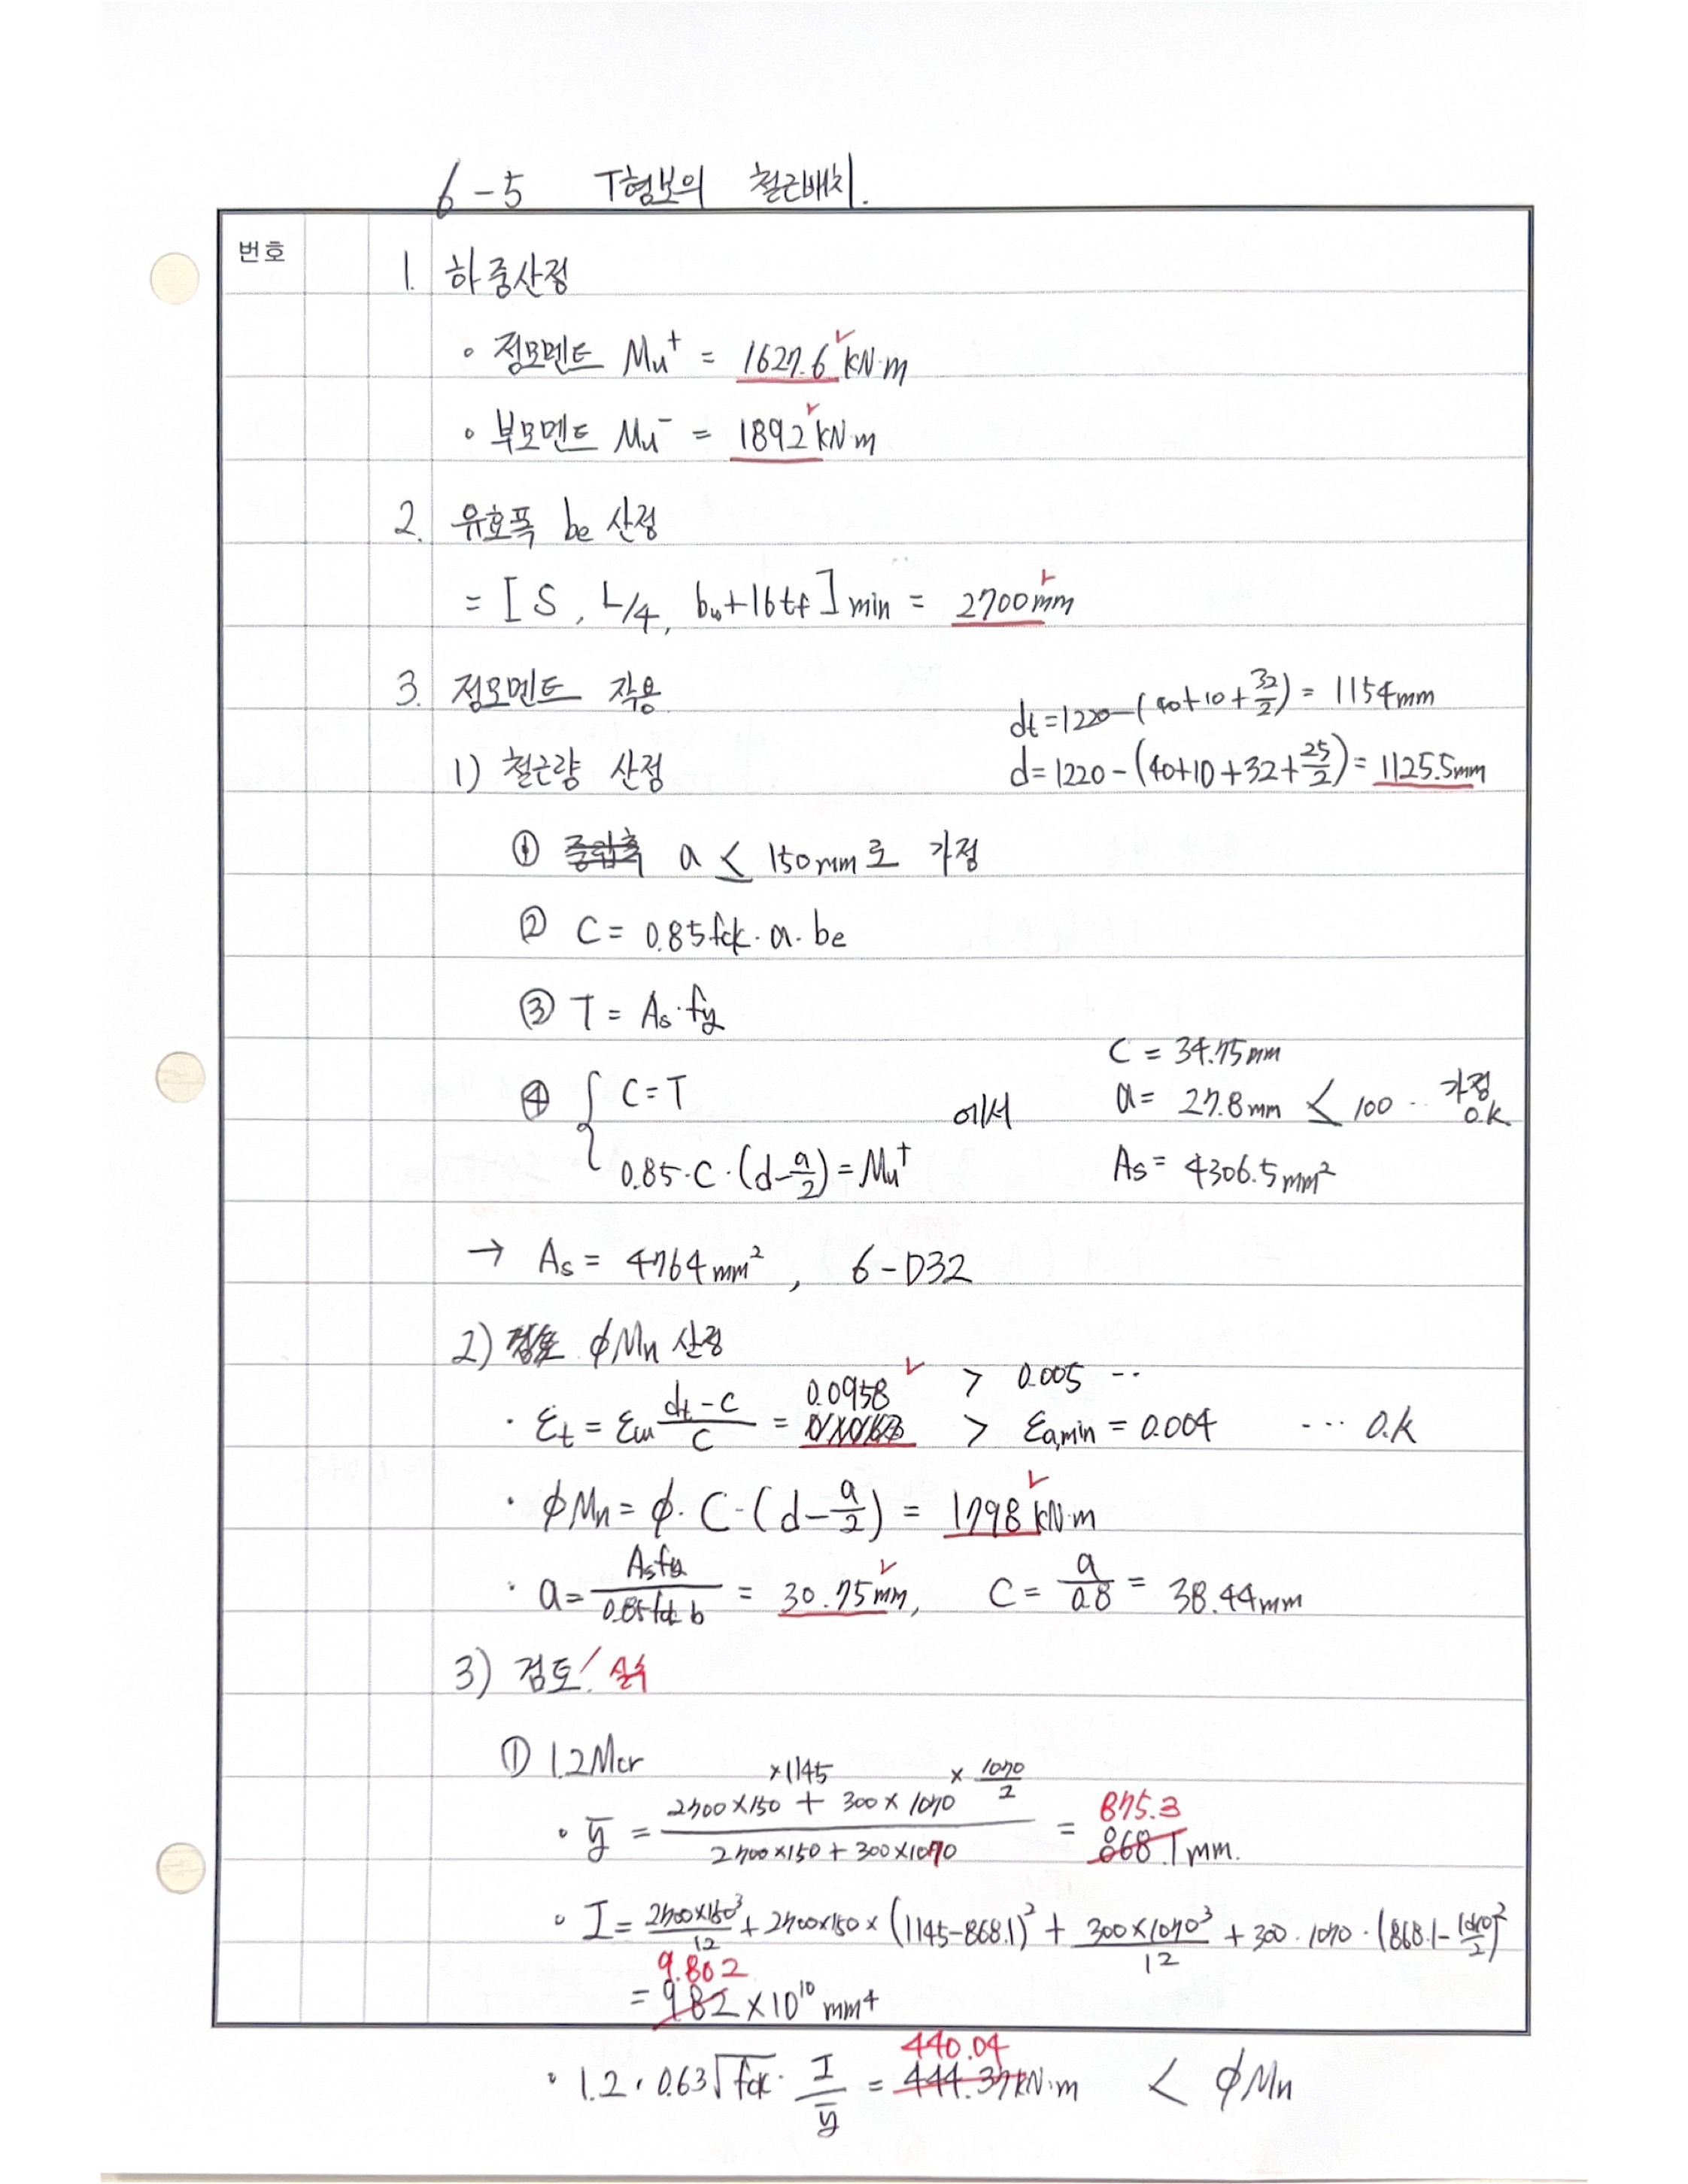 6-5 T형보의 철근배치.
번호
1. 하중산정
∘ 정모멘트 Mu⁺ = 1627.6 kN·m
∘ 부모멘트 Mu⁻ = 1892 kN·m
2. 유효폭 be 산정
= [ S, L/4, bw+16tf ] min = 2700mm
3. 정모멘트 작용
dt = 1220-(40+10+32/2) = 1154mm
1) 철근량 산정
d = 1220-(40+10+32+25/2) = 1125.5mm
① a ≤ 150mm로 가정
② C = 0.85fck·a·be
③ T = As·fy
④ { C=T
0.85·C·(d-a/2) = Mu⁺
에서
C = 34.75mm
a = 27.8mm ≤ 100 ·· 가정 O.K.
As = 4306.5mm²
→ As = 4764mm², 6-D32
2) 검토 ϕMn 산정
· εt = εcu (dt-c)/c = 0.0958 > 0.005 ··
> εa,min = 0.004 ··· O.K
· ϕMn = ϕ·C·(d-a/2) = 1798 kN·m
· a = Asfy/0.85fck b = 30.75mm, C = a/0.8 = 38.44mm
3) 검토! 실수
① 1.2Mcr
∘ ȳ = (2700×150 ×1145 + 300×1070 × 1070/2) / (2700×150+300×1070) = 868.1mm. 875.3
∘ I = 2700×150³/12 + 2700×150×(1145-868.1)² + 300×1070³/12 + 300·1070·(868.1-1070/2)²
= 9.82 9.802 ×10¹⁰ mm4
∘ 1.2·0.63√fck · I/ȳ = 444.37kN·m 440.04 < ϕMn